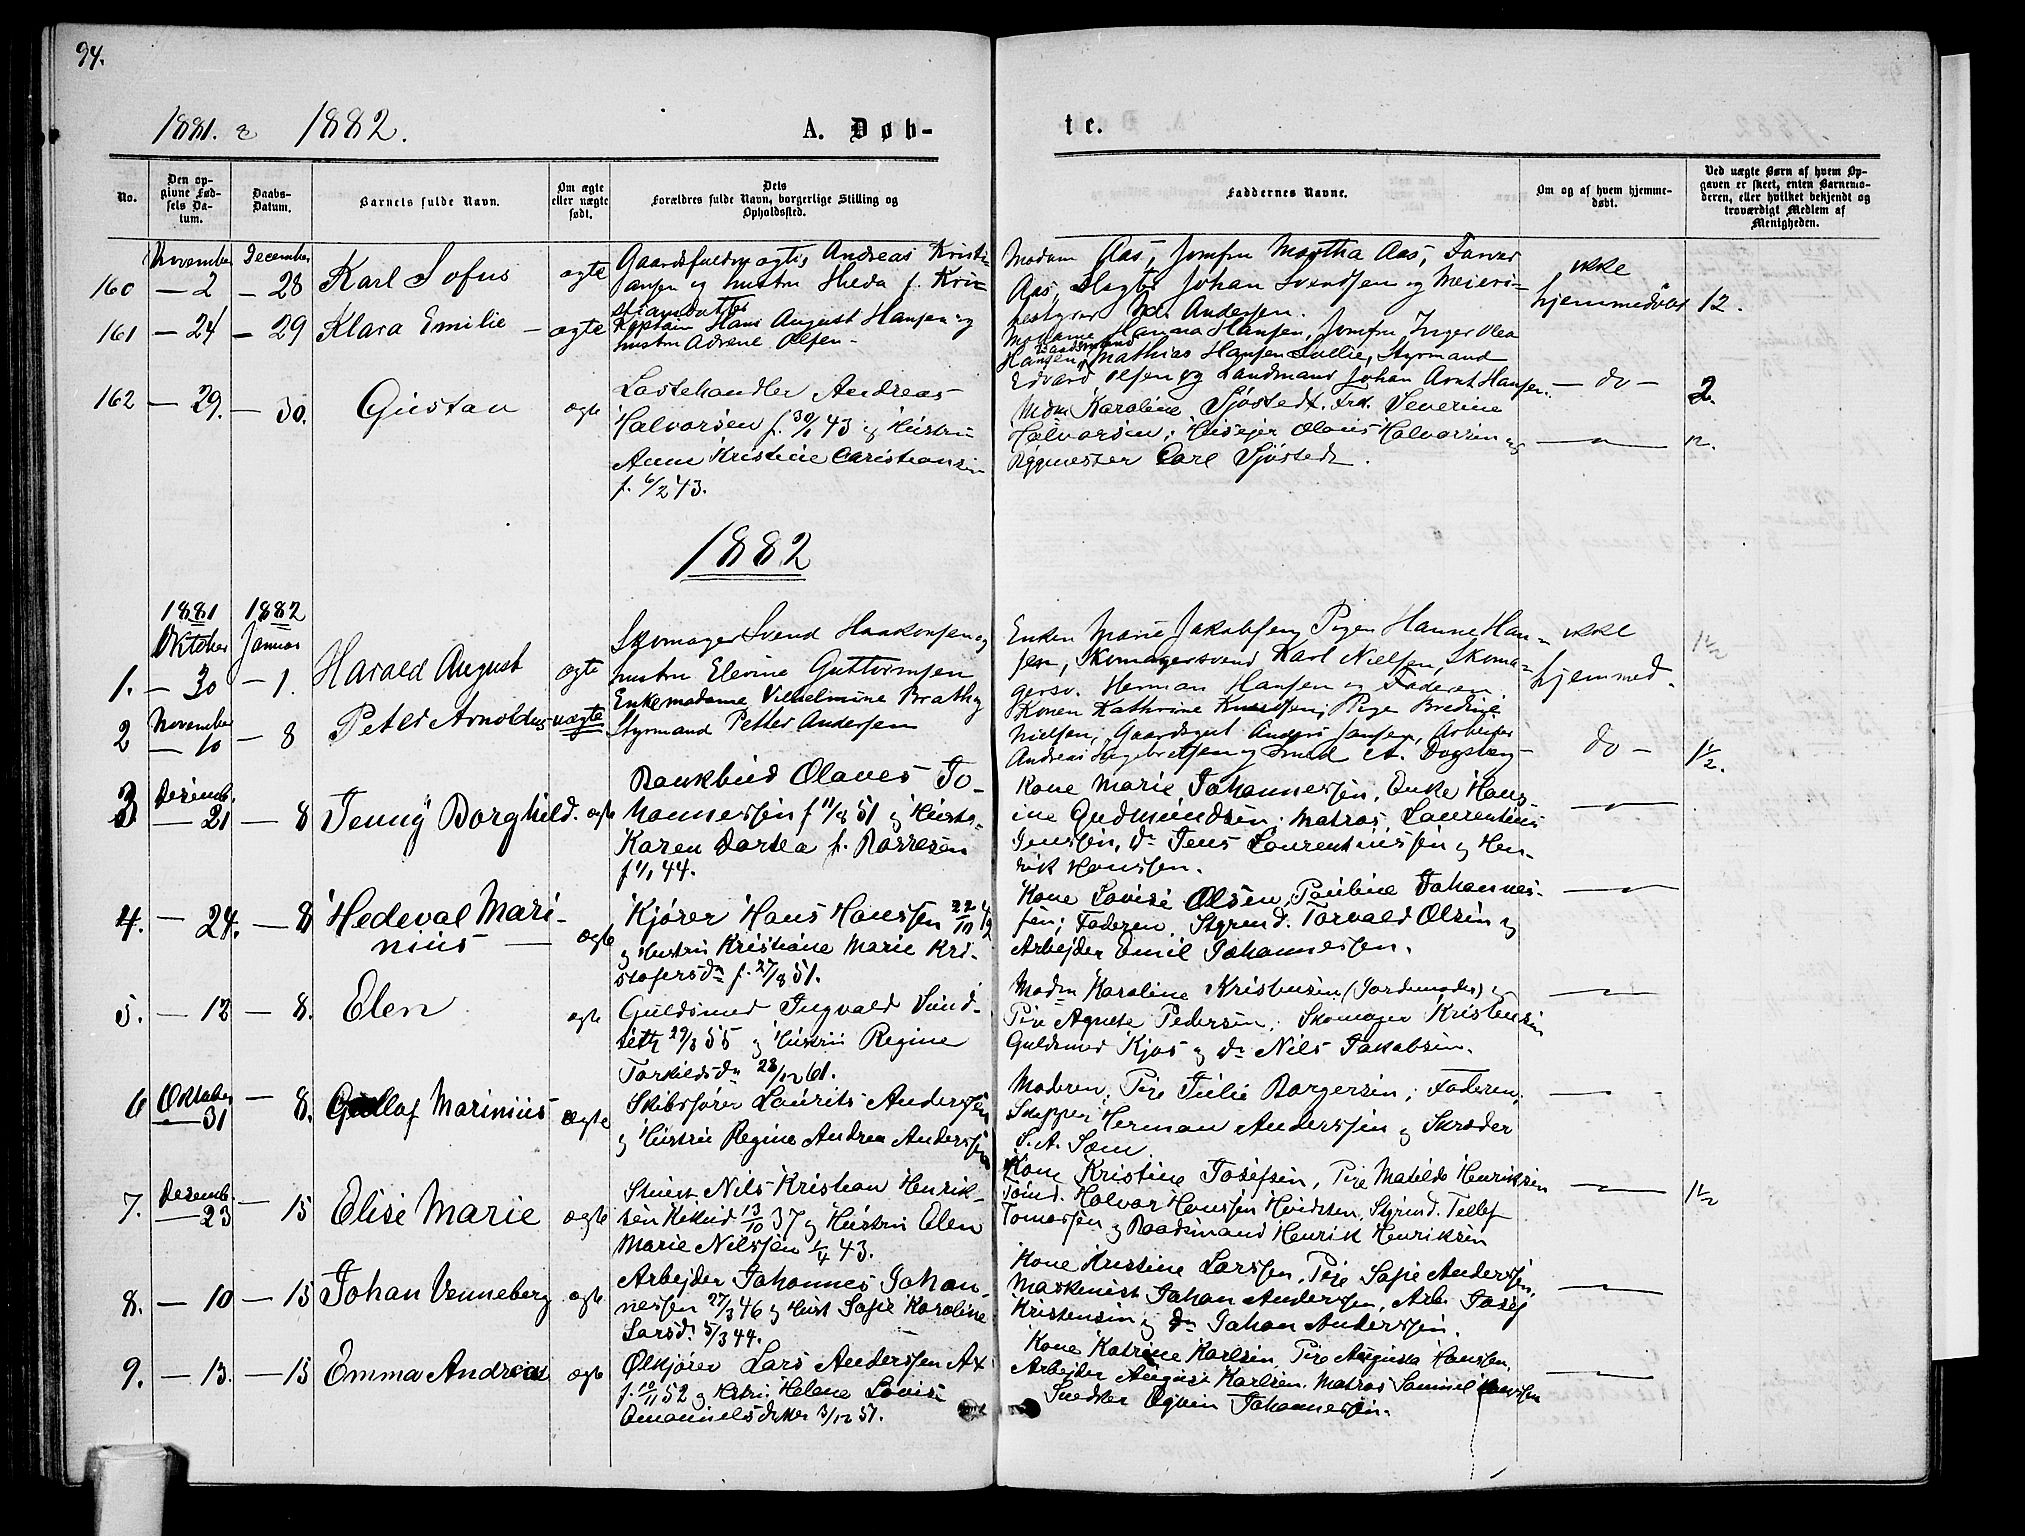 94.
1881. & 1882.
A. Døb-
te.
No.
Den op-
givne Fød-
sels Da-
tum.
Daabs-
Datum.
Barnets fulde Navn.
Om ægte
eller uægte
født.
Dets
Forældres fulde Navn, borgerlige Stilling og
Opholdssted.
Faddernes Navne.
Om og af hvem hjemme-
døbt.
Ved uægte Børn af hvem Op-
gaven er skeet, enten Barnemo-
deren, eller hvilket bekjendt og
troværdigt Medlem af
Menigheden.
November December
160 — 2 — 28 Karl Sofus ægte
Andreas Kristi-
ansen og hustru f. Kri-
stiansdatter
Madam Aas, Jomfru Martha Aas, Farver
Aas, Johan Svendsen og Meieri-
bestyrer Andersen.
ikke
hjemmedøbt 12.
161 — 24 — 29 Klara Emilie — ægte
Kaptain Hans August Hansen og
hustru Olsen -
Madame Hanna Hansen, Jomfru Inger Olea
Hansen, Baadsmand Mathias Hansen Styrmand
Edvard Olsen og Landmand Johan Arnt Hansen.
— do — 2.
162 — 29. — 30. Gustav ægte
Lastehandler Andreas
Halvorsen f. 30/1 43 og Hustru
Anne Kristine Christiansen
f. 6/2 43.
Mdm Karoline Sjöstedt, Frk. Severine
Halvorsen; Husejer Olaus Halvorsen og
Rigmester Carl Sjöstedt.
— " — 12.
1882
1881 1882
Oktober Januar
1. — 30 — 1. Harald August ægte
Skomager Svend Haakonsen og
hustru Elevine Guttormsen
Enken Marie Jakobsen, Pigen Hanne Han-
sen, Skomagersvend Karl Nielsen, Skoma-
gersv. Herman Hansen og Faderen.
ikke
hjemmed. 1 1/2
November
2 — 10 — 8 Peter Arnoldus uægte
Enkemadame Vilhelmine Bratby
Styrmand Petter Andersen
Konen Kathrine Knudsen; Pige Bredine
Nielsen, Gaardsgut Anders Jansen, Arbeider
Andreas Ingebretsen og Smed A. Dogsberg —
do — 1 1/2.
Desemb.
3 — 21 — 8 Jenny Borghild. ægte
Bankbud Olaves Jo-
hannessen f 11/8 51 og Hustr.
Karen Dortea f. Borresen
f 1/1 44.
Kone Marie Johannessen, Enke Hans-
ine Gudmundsen; Matros Laurentius
Jenssen, do Jens Laurentiussen og Hen-
rik Hanssen.
— " —
4. — 24. — 8 Hedeval Mari-
nius — ægte
Kjører Hans Hanssen 22/10 42
og Hustru Kristiane Marie Kri-
stofersdr f. 27/8 51.
Kone Lovise Olsen, Pauline Johannes-
sen; Faderen, Styrmd. Torvald Olsen og
Arbejder Emil Johannessen.
— " —
5. — 12 — 8. Elen ægte
Guldsmed Ingvald Sund-
seth 29/8 55 og Hustru Regine
Torkildsdr 28/12 61.
Madm Karoline Kristensen (Jordemoder),
Pige Agnete Pedersen, Skomager Kristensen
Guldsmed Kjos og do Nils Jakobsen.
— " —
Oktober
6 — 31 — 8. Gullaf Marinius ægte
Skibsfører Laurits Anderssen
og Hustru Regine Andrea Anderssen
Moderen, Pige Julie Borgersen; Faderen;
Skipper Herman Anderssen og Skræder
S. A. Sem
— " —
Desemb.
7. — 23 — 15 Elise Marie ægte
Stuert Nils Kristian Henrik-
sen 13/10 37 og Hustru Elen
Marie Nilssen 2/4 43.
Kone Kristine Josefsen, Pige Matilde Henriksen
Tømd. Halvor Hanssen Hvidsten, Styrmd. Tellef
Tomassen og Baadsmand Henrik Henriksen
— " — 1 1/2
8. — 10 — 15 Johan Venneberg ægte
Arbejder Johannes Johan-
nessen 27/3 46 og Hust Sofie Karoline
Larsdr. 5/3 44.
Kone Kristine Larssen, Pige Sofie Anderssen,
Maskinist Johan Anderssen, Arb. Josef
Kristensen og do Johan Anderssen.
— " —
9. — 13. — 15 Emma Andrea ægte
Ølkjører Lars Anderssen Ax
f. 10/11 52 og Hstru. Helene Lovise
Emanuelsdatter 3/12 51.
Kone Katrine Karlsen, Pige Augusta Hanssen,
Arbejder August Karlsen, Matros Samuel Hanssen
Snedker Edvin Johannessen.
— " —